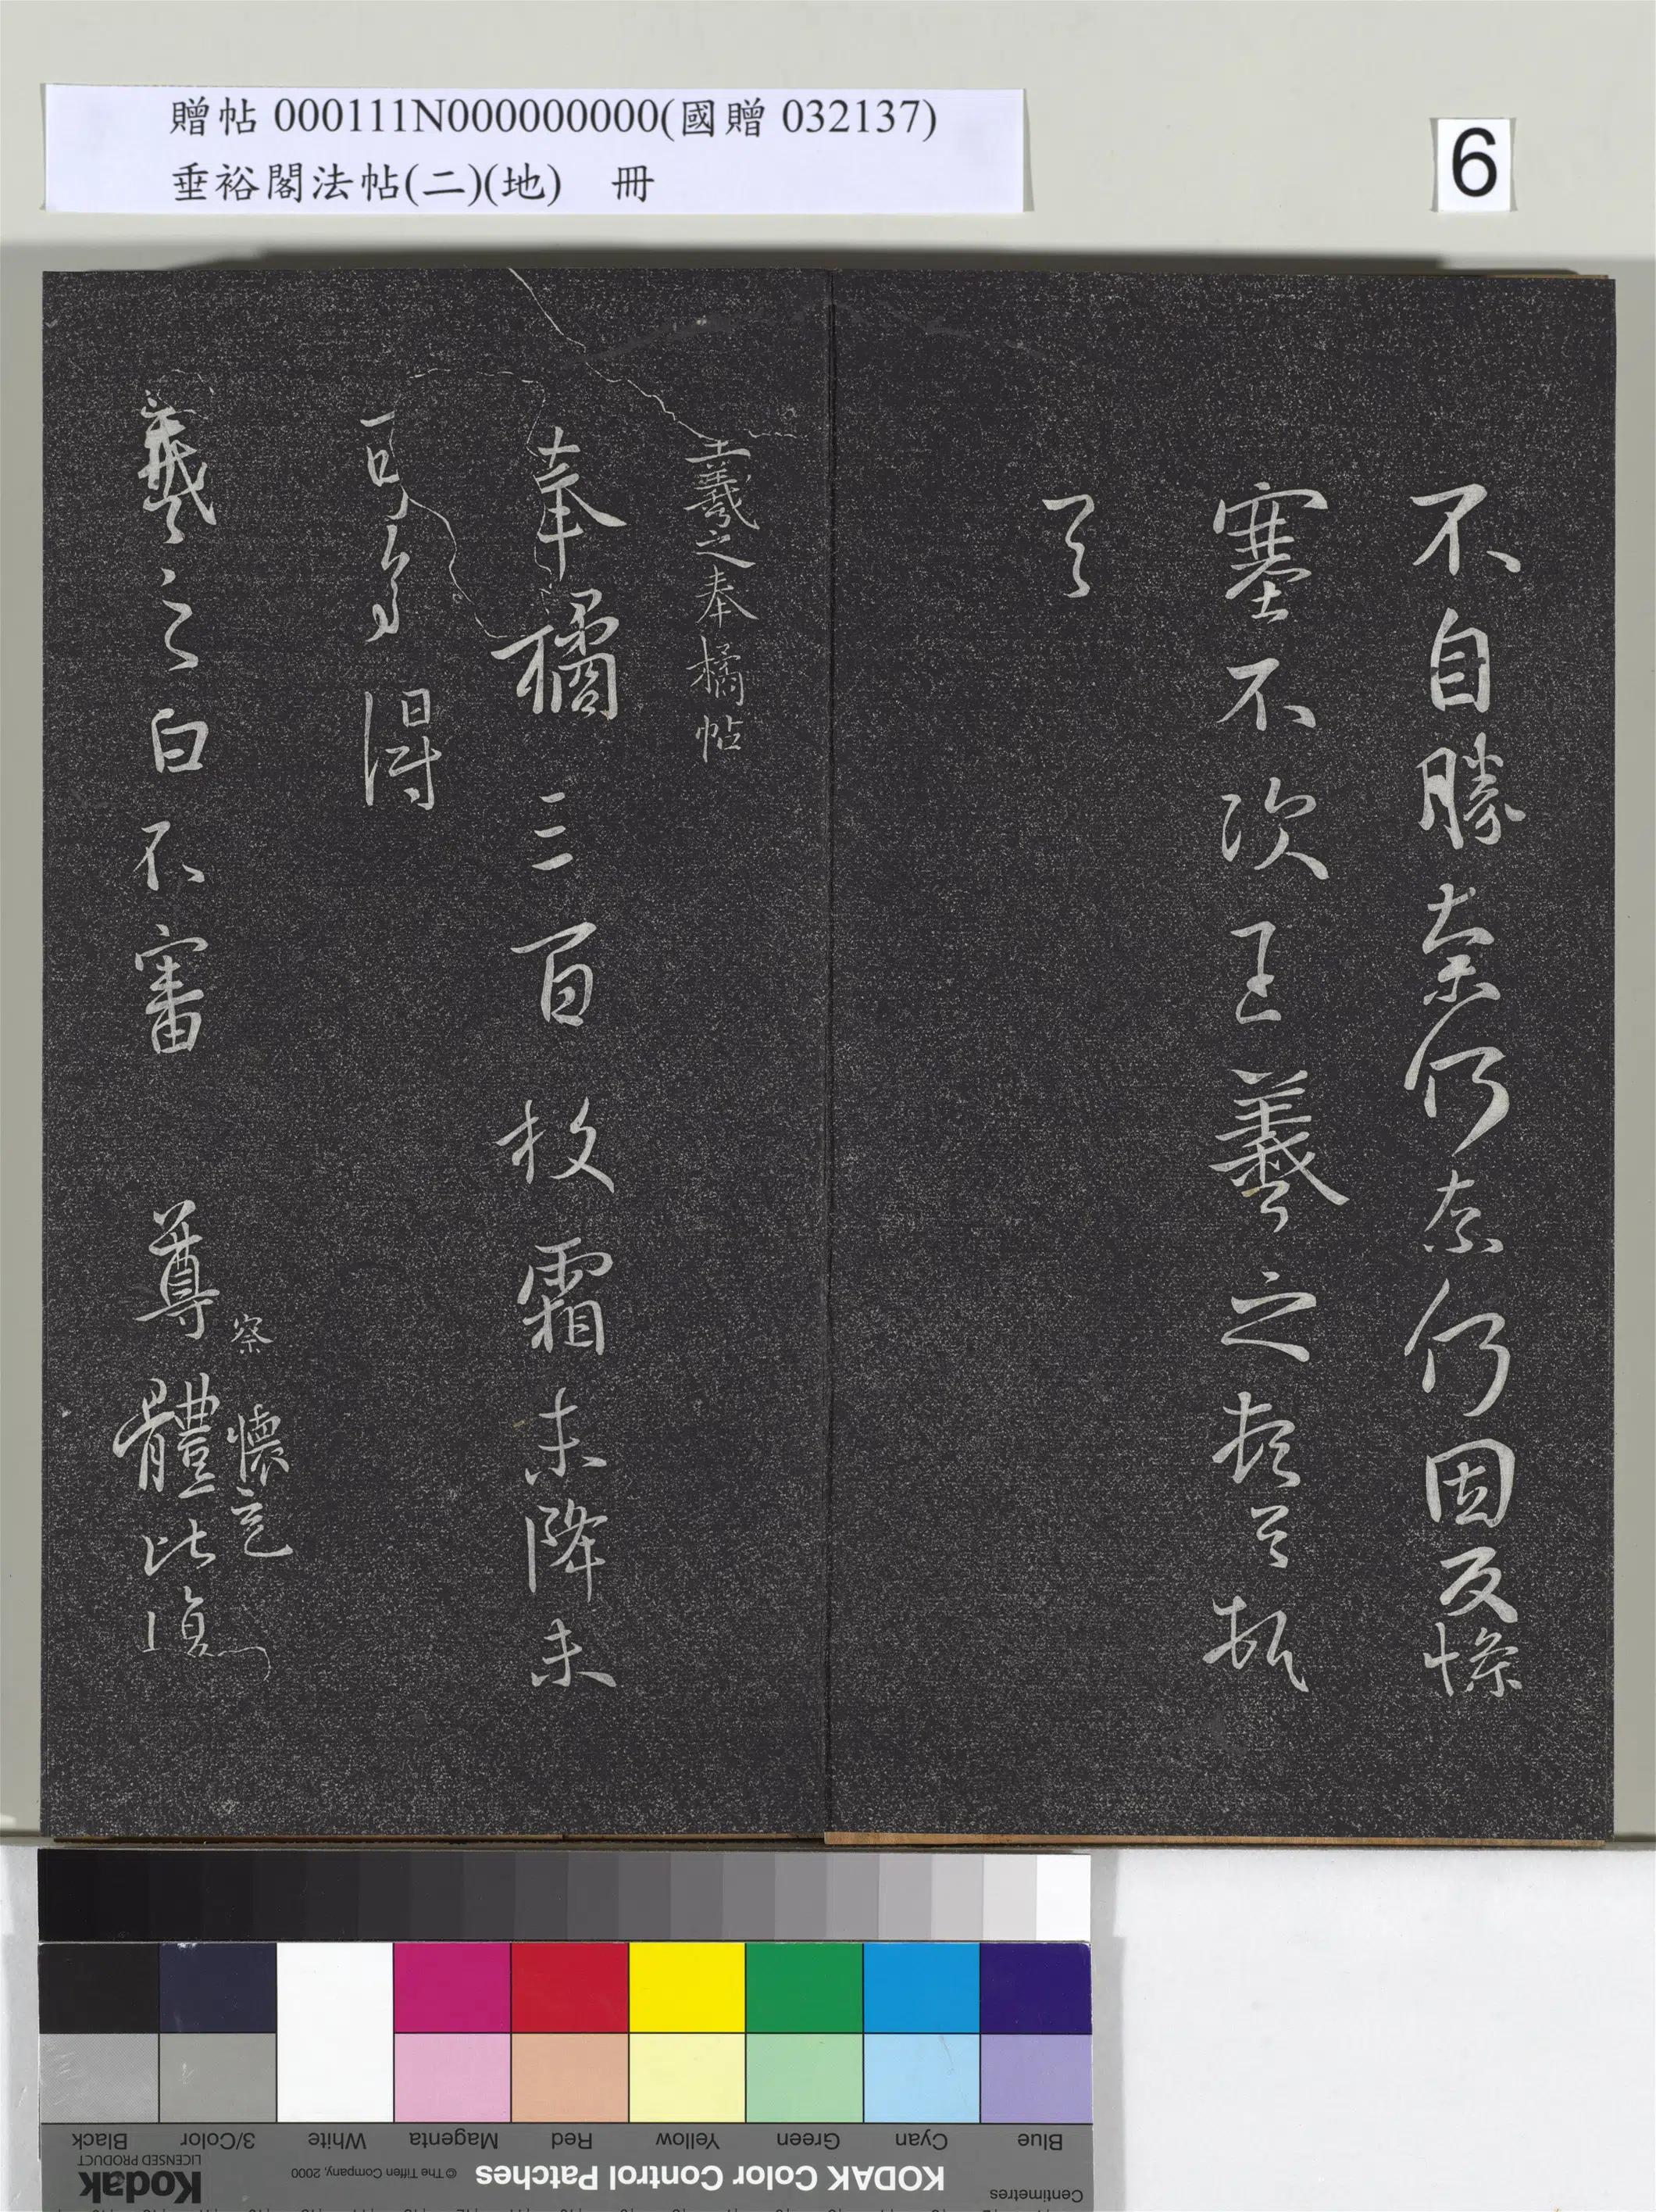 贈帖 000111N000000000(國贈 032137)
垂裕閣法帖(二)(地) 冊
6
不自勝奈何奈何因反慘
塞不次王羲之頓首頓
首
王羲之奉橘帖
奉橘三百枚霜未降未
可多得
察 懷充
羲之白不審 尊體比復
Black
3/Color
White
Magenta
Red
Yellow
Green
Cyan
Blue
Kodak
LICENSED PRODUCT
© The Tiffen Company, 2000
KODAK Color Control Patches
Centimetres